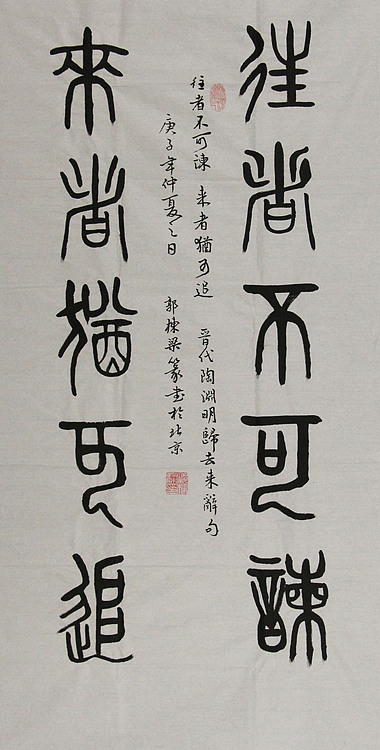 往者不可諫
往者不可諫 来者猶可追 晉代陶淵明歸去来辭句
庚子年仲夏之日 郭棟梁篆書於北京
來者猶可追